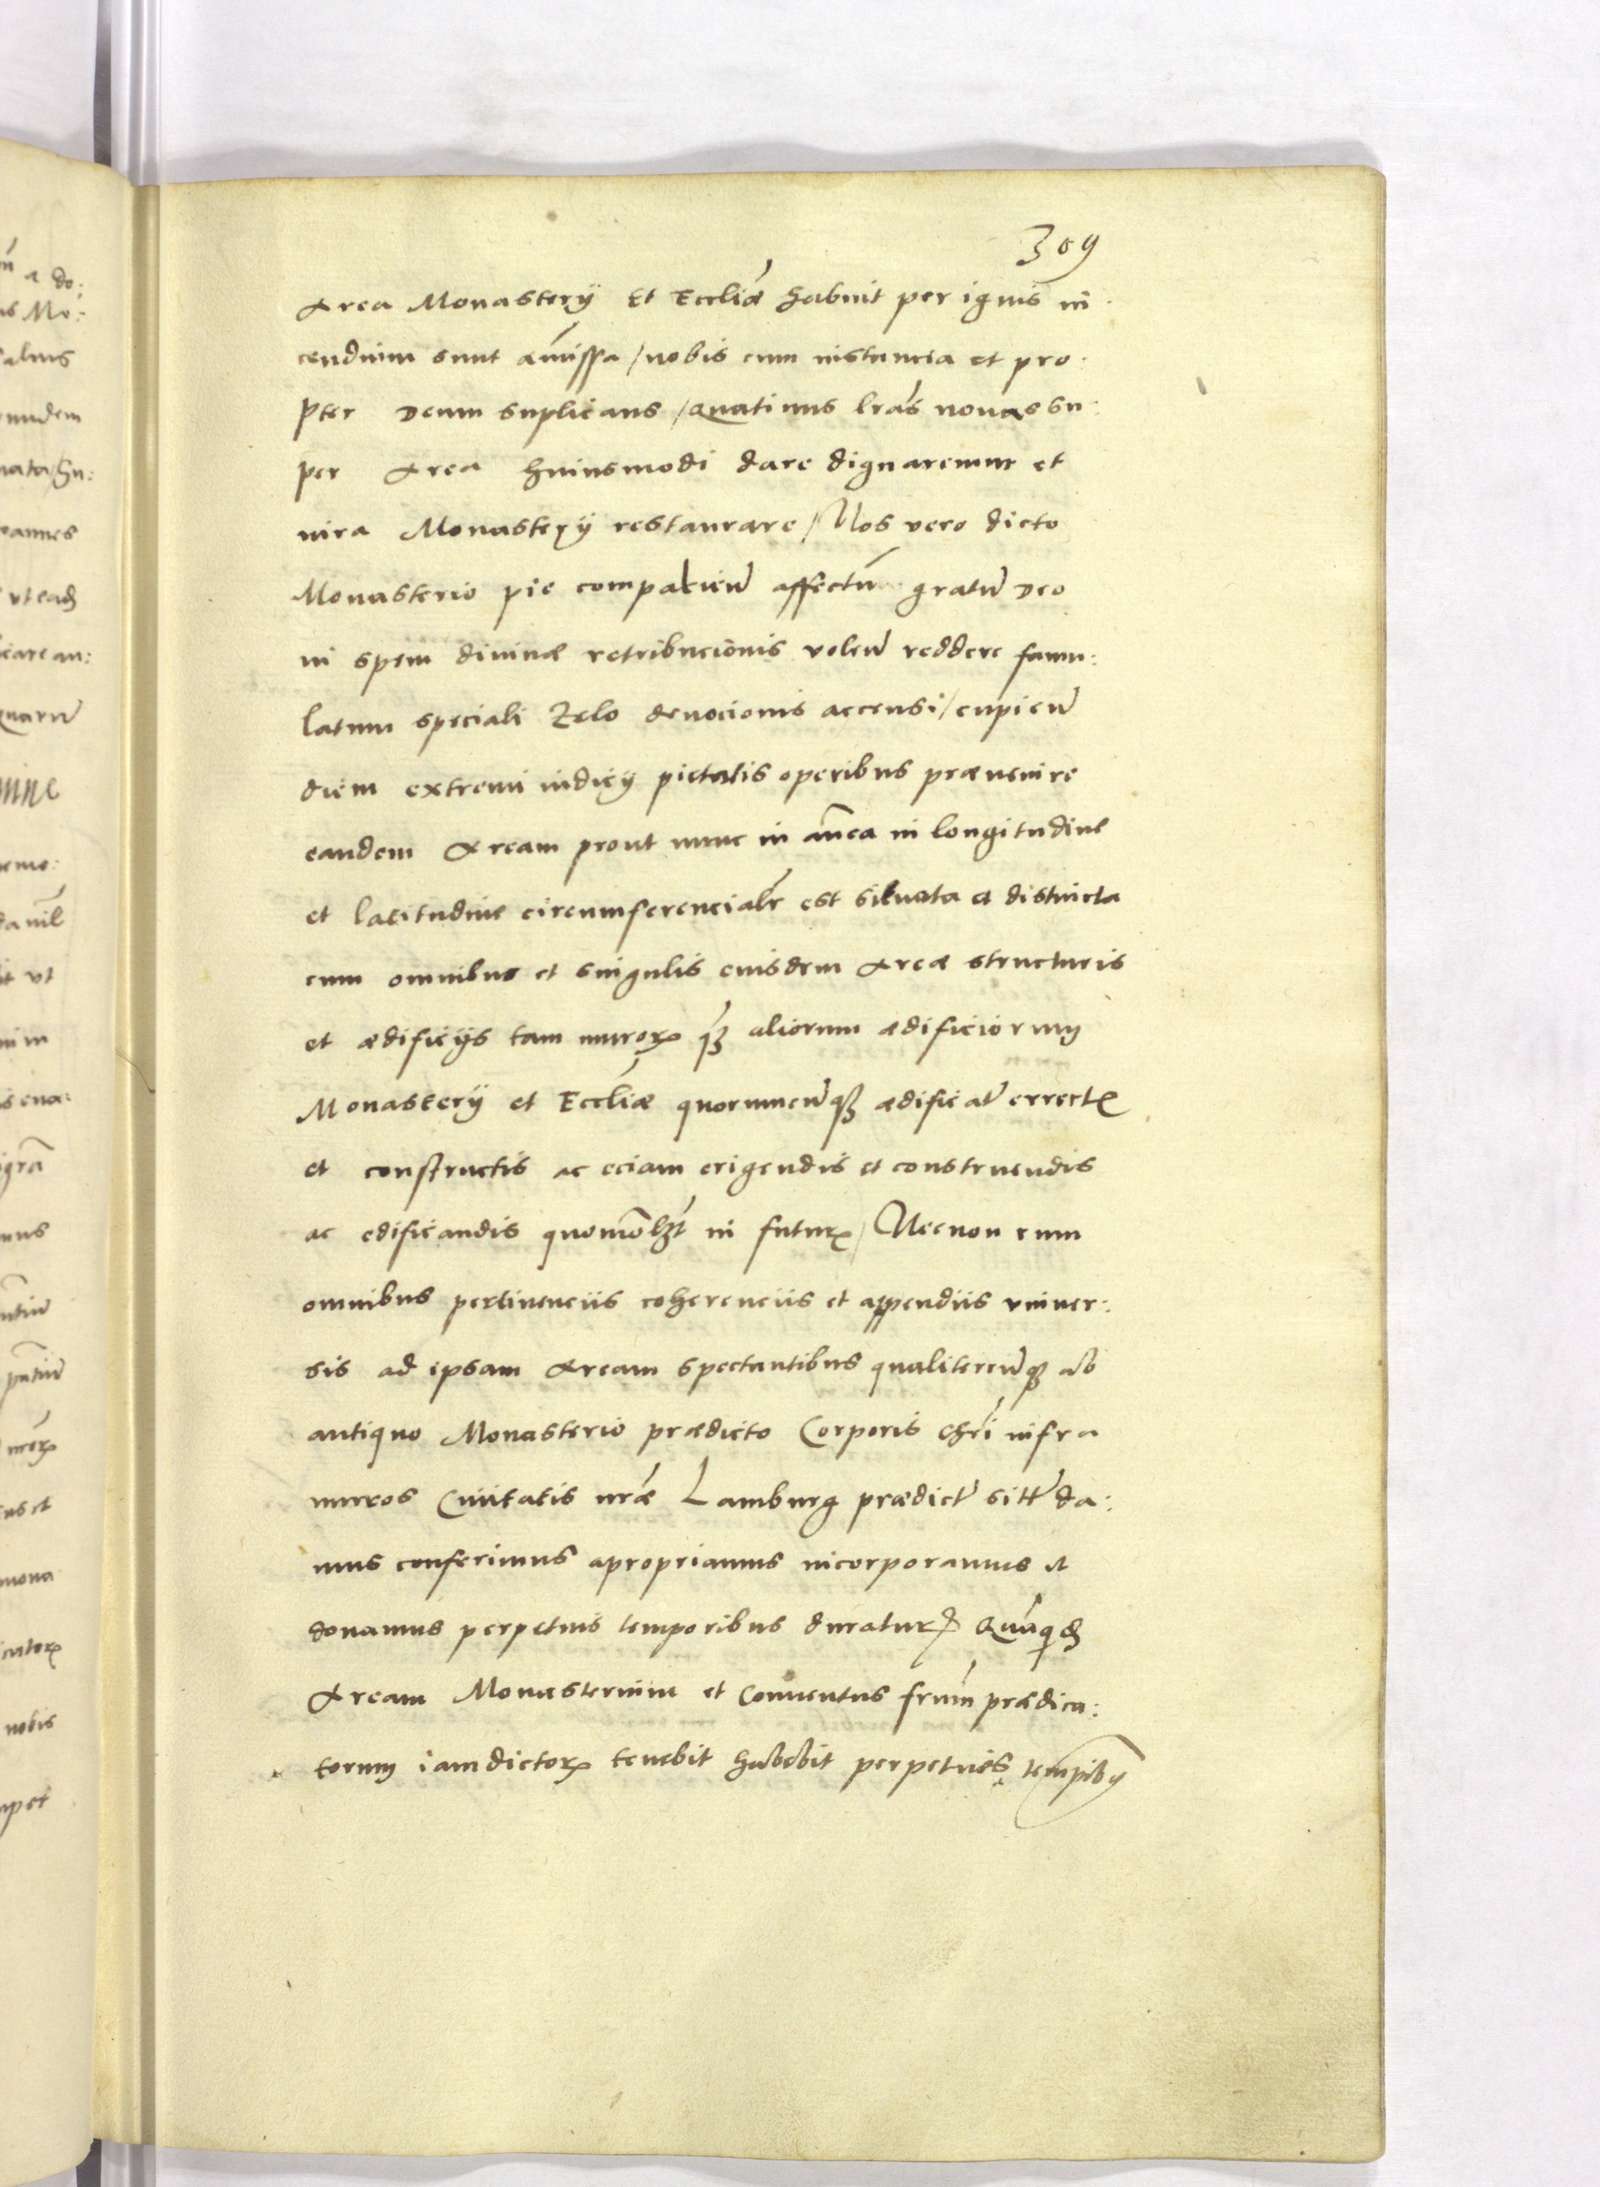 309
Area Monasterij Et Eccliæ habuit per ignis in
cendium sunt amissa / nobis cum instancia et pro
pter Deum suplicans / Quatinus lras nouas su:
per Area huiusmodi dare dignaremur et
iura Monasterij restaurare / Nos vero dicto
Monasterio pie compacien affectu gratu Deo
in spem diuinæ retribucionis volen reddere famu:
latum speciali Zelo deuocionis accensi / cupien
diem extremi iudicij pietatis operibus præuenire
eandem Aream prout nunc in area in longitudine
et latitudine circumferencialr est situata et distincta
cum omnibus et singulis eiusdem Areæ structuris
et ædificijs tam muror q3 aliorum ædificiorum
Monasterij et Eccliæ quorumcunq3 ædificat errect
et constructis ac eciam erigendis et construendis
ac edificandis quomolt in futur / Necnon cum
omnibus pertinenciis coherenciis et appendiis vniuer:
sis ad ipsam Aream spectantibus qualitercunq3 ab
antiquo Monasterio prædicto Corporis chri infra
muros Ciuitatis nræ Lamburg prædict sitt da:
mus conferimus apropriamus incorporamus et
donamus perpetuis temporibus duratur Quaquid
Aream Monasterium et Conuentus frum prædica:
torum iam dictor tenebit habebit perpetuis tempibus
a do:
Mo: